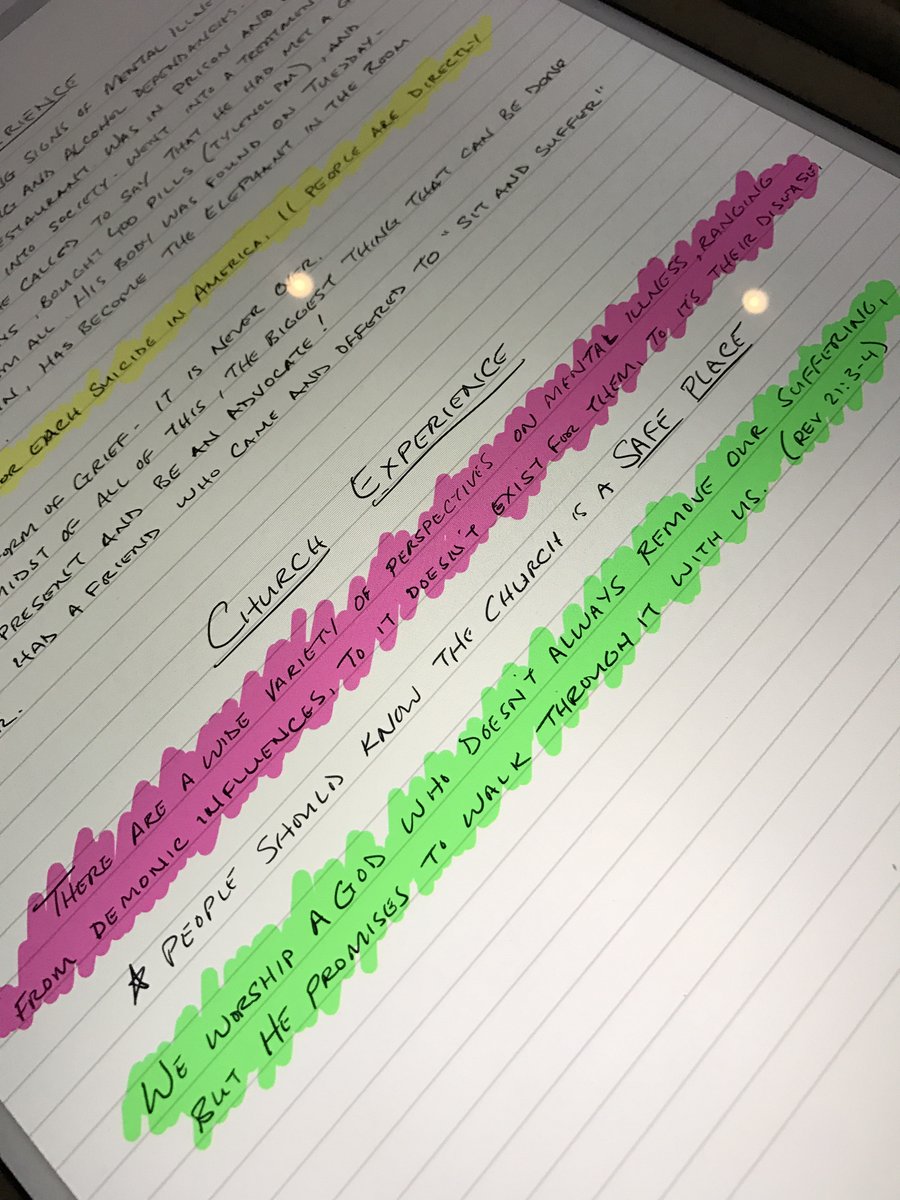 RIENCE
NG SIGNS OF MENTAL ILLNE
G AND ALCOHOL DEPENDANCIES.
ESTAURANT WAS IN PRISON AND
INTO SOCIETY. WENT INTO A TREATMENT
E CALLED TO SAY THAT HE HAD MET A G
YS, BOUGHT 400 PILLS (TYLENOL PM), AND
M ALL. HIS BODY WAS FOUND ON TUESDAY.
N, HAS BECOME THE ELEPHANT IN THE ROOM
OR EACH SUICIDE IN AMERICA, 11 PEOPLE ARE DIRECTLY
ORM OF GRIEF - IT IS NEVER OVER.
MIDST OF ALL OF THIS, THE BIGGEST THING THAT CAN BE DONE
PRESENT AND BE AN ADVOCATE!
HAD A FRIEND WHO CAME AND OFFERED TO "SIT AND SUFFER"
R.
CHURCH EXPERIENCE
THERE ARE A WIDE VARIETY OF PERSPECTIVES ON MENTAL ILLNESS, RANGING
FROM DEMONIC INFLUENCES, TO IT DOESN'T EXIST FOR THEM, TO IT'S THEIR DISEASE.
☆ PEOPLE SHOULD KNOW THE CHURCH IS A SAFE PLACE
WE WORSHIP A GOD WHO DOESN'T ALWAYS REMOVE OUR SUFFERING,
BUT HE PROMISES TO WALK THROUGH IT WITH US. (REV 21:3-4)